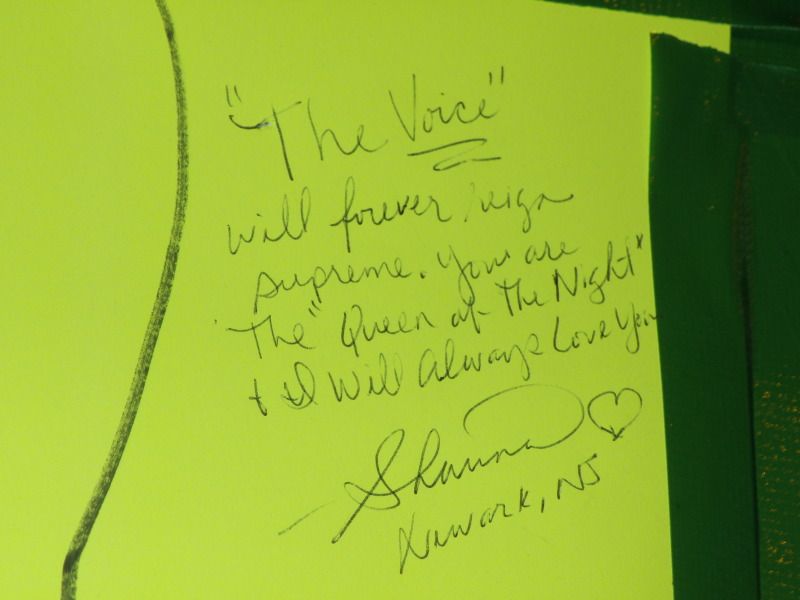 "The Voice"
will forever reign
supreme. You are
The "Queen of The Night"
+ I Will Always Love You
- Shauna ♡
Newark, NJ